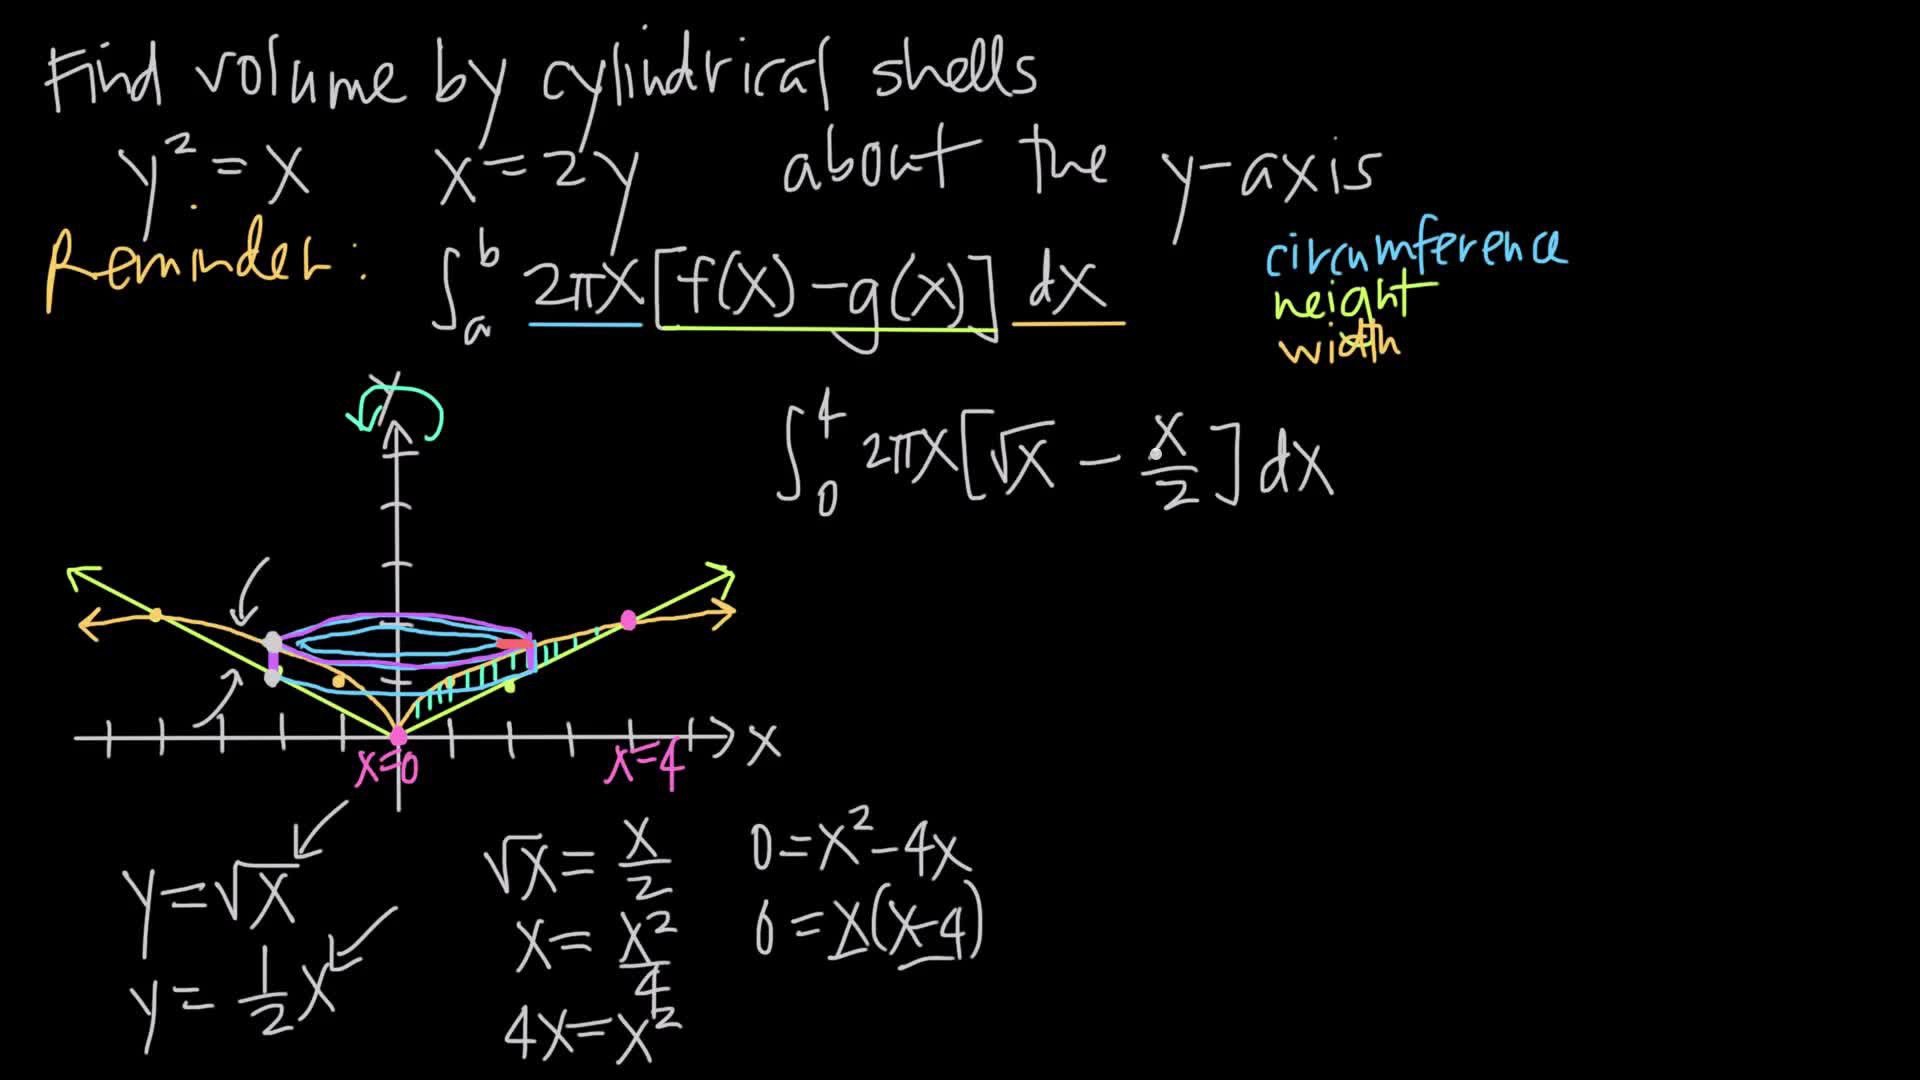 Find volume by cylindrical shells
y² = x x = 2y about the y-axis
Reminder: ∫_a^b 2πx [f(x) - g(x)] dx
circumference
height
width
y
∫_0^4 2πx [√x - x/2] dx
x
x=0 x=4
y = √x
y = 1/2 x
√x = x/2
x = x²/4
4x = x²
0 = x² - 4x
0 = x(x-4)